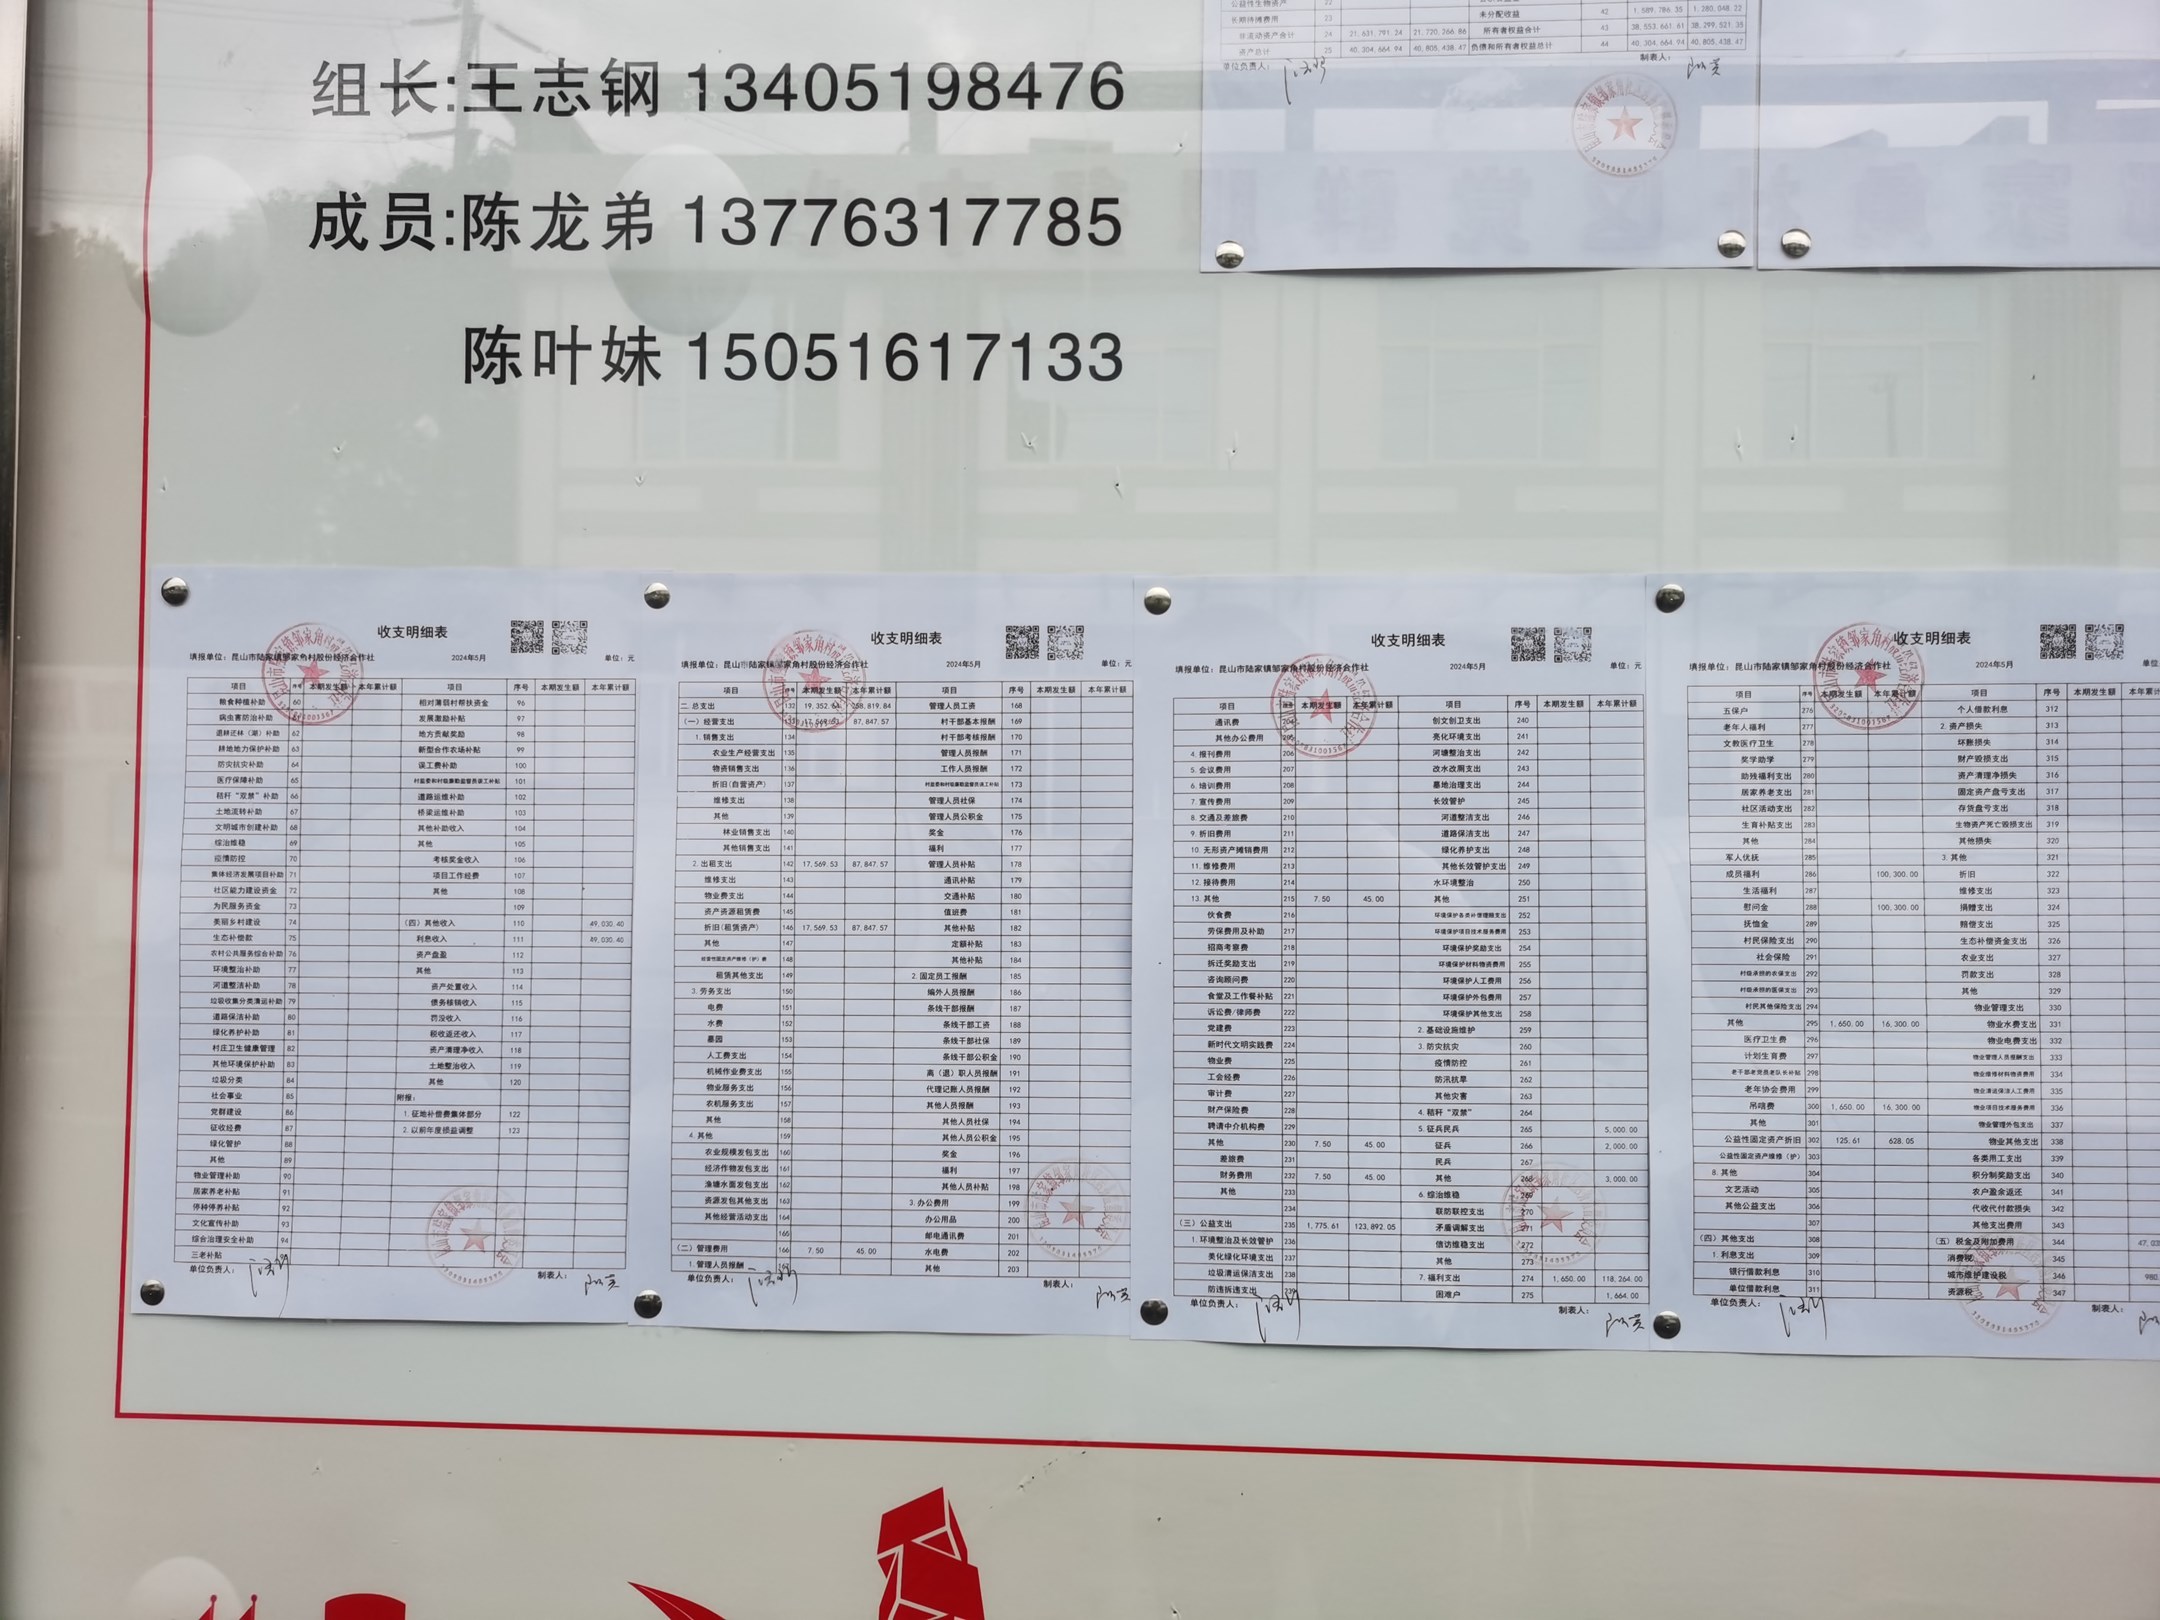 公益性生物资产 22
长期待摊费用 23 未分配收益 42 1,589,786.35 1,280,048.22
非流动资产合计 24 21,631,791.24 21,720,266.86 所有者权益合计 43 38,553,661.61 38,299,521.35
资产总计 25 40,304,664.94 40,805,438.47 负债和所有者权益总计 44 40,304,664.94 40,805,438.47
单位负责人： 制表人：
组长:王志钢 13405198476
成员:陈龙弟 13776317785
陈叶妹 15051617133
收支明细表
填报单位：昆山市陆家镇邹家角村股份经济合作社 2024年5月 单位：元
项目 序号 本期发生额 本年累计额 项目 序号 本期发生额 本年累计额
粮食种植补助 60 相对薄弱村帮扶资金 96
病虫害防治补助 61 发展激励补贴 97
退耕还林（湖）补助 62 地方贡献奖励 98
耕地地力保护补助 63 新型合作农场补贴 99
防灾抗灾补助 64 误工费补助 100
医疗保障补助 65 村监委和村临廉勤监督员误工补贴 101
秸秆“双禁”补助 66 道路运维补助 102
土地流转补助 67 桥梁运维补助 103
文明城市创建补助 68 其他补助收入 104
综治维稳 69 其他 105
疫情防控 70 考核奖金收入 106
集体经济发展项目补助 71 项目工作经费 107
社区能力建设资金 72 其他 108
为民服务资金 73 109
美丽乡村建设 74 （四）其他收入 110 49,030.40
生态补偿款 75 利息收入 111 49,030.40
农村公共服务综合补助 76 资产盘盈 112
环境整治补助 77 其他 113
河道整洁补助 78 资产处置收入 114
垃圾收集分类清运补助 79 债务核销收入 115
道路保洁补助 80 罚没收入 116
绿化养护补助 81 税收返还收入 117
村庄卫生健康管理 82 资产清理净收入 118
其他环境保护补助 83 土地整治收入 119
垃圾分类 84 其他 120
社会事业 85 附报：
党群建设 86 1.征地补偿费集体部分 122
征收经费 87 2.以前年度损益调整 123
绿化管护 88
其他 89
物业管理补助 90
居家养老补贴 91
停种停养补贴 92
文化宣传补助 93
综合治理安全补助 94
三老补贴
单位负责人： 制表人：
收支明细表
填报单位：昆山市陆家镇邹家角村股份经济合作社 2024年5月 单位：元
项目 序号 本期发生额 本年累计额 项目 序号 本期发生额 本年累计额
二.总支出 132 19,352.64 管理人员工资 168
（一）经营支出 133 17,569.53 87,847.57 村干部基本报酬 169
1.销售支出 134 村干部考核报酬 170
农业生产经营支出 135 管理人员报酬 171
物资销售支出 136 工作人员报酬 172
折旧(自营资产) 137 村监委和村临廉勤监督员误工补贴 173
维修支出 138 管理人员社保 174
其他 139 管理人员公积金 175
林业销售支出 140 奖金 176
其他销售支出 141 福利 177
2.出租支出 142 17,569.53 87,847.57 管理人员补贴 178
维修支出 143 通讯补贴 179
物业费支出 144 交通补贴 180
资产资源租赁费 145 值班费 181
折旧(租赁资产) 146 17,569.53 87,847.57 其他补贴 182
其他 147 定额补贴 183
经营性固定资产维修（护）费 148 其他补贴 184
租赁其他支出 149 2.固定员工报酬 185
3.劳务支出 150 编外人员报酬 186
电费 151 条线干部报酬 187
水费 152 条线干部工资 188
墓园 153 条线干部社保 189
人工费支出 154 条线干部公积金 190
机械作业费支出 155 离（退）职人员报酬 191
物业服务支出 156 代理记账人员报酬 192
农机服务支出 157 其他人员报酬 193
其他 158 其他人员社保 194
4.其他 159 其他人员公积金 195
农业规模发包支出 160 奖金 196
经济作物发包支出 161 福利 197
渔塘水面发包支出 162 其他人员补贴 198
资源发包其他支出 163 3.办公费用 199
其他经营活动支出 164 办公用品 200
165 邮电通讯费 201
（二）管理费用 166 7.50 45.00 水电费 202
1.管理人员报酬 其他 203
单位负责人： 制表人：
收支明细表
填报单位：昆山市陆家镇邹家角村股份经济合作社 2024年5月 单位：元
项目 本期发生额 本年累计额 项目 序号 本期发生额 本年累计额
通讯费 创文创卫支出 240
其他办公费用 亮化环境支出 241
4.报刊费用 206 河塘整治支出 242
5.会议费用 207 改水改厕支出 243
6.培训费用 208 墓地治理支出 244
7.宣传费用 209 长效管护 245
8.交通及差旅费 210 河道整洁支出 246
9.折旧费用 211 道路保洁支出 247
10.无形资产摊销费用 212 绿化养护支出 248
11.维修费用 213 其他长效管护支出 249
12.接待费用 214 水环境整治 250
13.其他 215 7.50 45.00 其他 251
伙食费 216 环境保护各类补偿理赔支出 252
劳保费用及补助 217 环境保护项目技术服务费用 253
招商考察费 218 环境保护奖励支出 254
拆迁奖励支出 219 环境保护材料物资费用 255
咨询顾问费 220 环境保护人工费用 256
食堂及工作餐补贴 221 环境保护外包费用 257
诉讼费/律师费 222 环境保护其他支出 258
党建费 223 2.基础设施维护 259
新时代文明实践费 224 3.防灾抗灾 260
物业费 225 疫情防控 261
工会经费 226 防汛抗旱 262
审计费 227 其他灾害 263
财产保险费 228 4.秸秆“双禁” 264
聘请中介机构费 229 5.征兵民兵 265 5,000.00
其他 230 7.50 45.00 征兵 266 2,000.00
差旅费 231 民兵 267
财务费用 232 7.50 45.00 其他 268 3,000.00
其他 233 6.综治维稳 269
234 联防联控支出 270
（三）公益支出 235 1,775.61 123,892.05 矛盾调解支出 271
1.环境整治及长效管护 236 信访维稳支出 272
美化绿化环境支出 237 其他 273
垃圾清运保洁支出 238 7.福利支出 274 1,650.00 118,264.00
防违拆违支出 239 困难户 275 1,664.00
单位负责人： 制表人：
收支明细表
填报单位：昆山市陆家镇邹家角村股份经济合作社 2024年5月 单位
项目 序号 本期发生额 本年累计额 项目 序号 本期发生额 本年累计
五保户 276 个人借款利息 312
老年人福利 277 2.资产损失 313
文教医疗卫生 278 坏账损失 314
奖学助学 279 财产毁损支出 315
助残福利支出 280 资产清理净损失 316
居家养老支出 281 固定资产盘亏支出 317
社区活动支出 282 存货盘亏支出 318
生育补贴支出 283 生物资产死亡毁损支出 319
其他 284 其他损失 320
军人优抚 285 3.其他 321
成员福利 286 100,300.00 折旧 322
生活福利 287 维修支出 323
慰问金 288 100,300.00 捐赠支出 324
抚恤金 289 赔偿支出 325
村民保险支出 290 生态补偿资金支出 326
社会保险 291 农业支出 327
村级承担的农保支出 292 罚款支出 328
村级承担的医保支出 293 其他 329
村民其他保险支出 294 物业管理支出 330
其他 295 1,650.00 16,300.00 物业水费支出 331
医疗卫生费 296 物业电费支出 332
计划生育费 297 物业管理人员报酬支出 333
老干部老党员老队长补贴 298 物业维修材料物资费用 334
老年协会费用 299 物业清运保洁人工费用 335
吊唁费 300 1,650.00 16,300.00 物业项目技术服务费用 336
其他 301 物业管理外包支出 337
公益性固定资产折旧 302 125.61 628.05 物业其他支出 338
公益性固定资产维修（护） 303 各类用工支出 339
8.其他 304 积分制奖励支出 340
文艺活动 305 农户盈余返还 341
其他公益支出 306 代收代付款损失 342
307 其他支出费用 343
（四）其他支出 308 （五）税金及附加费用 344
1.利息支出 309 消费税 345
银行借款利息 310 城市维护建设税 346 980
单位借款利息 311 资源税 347
单位负责人： 制表人：